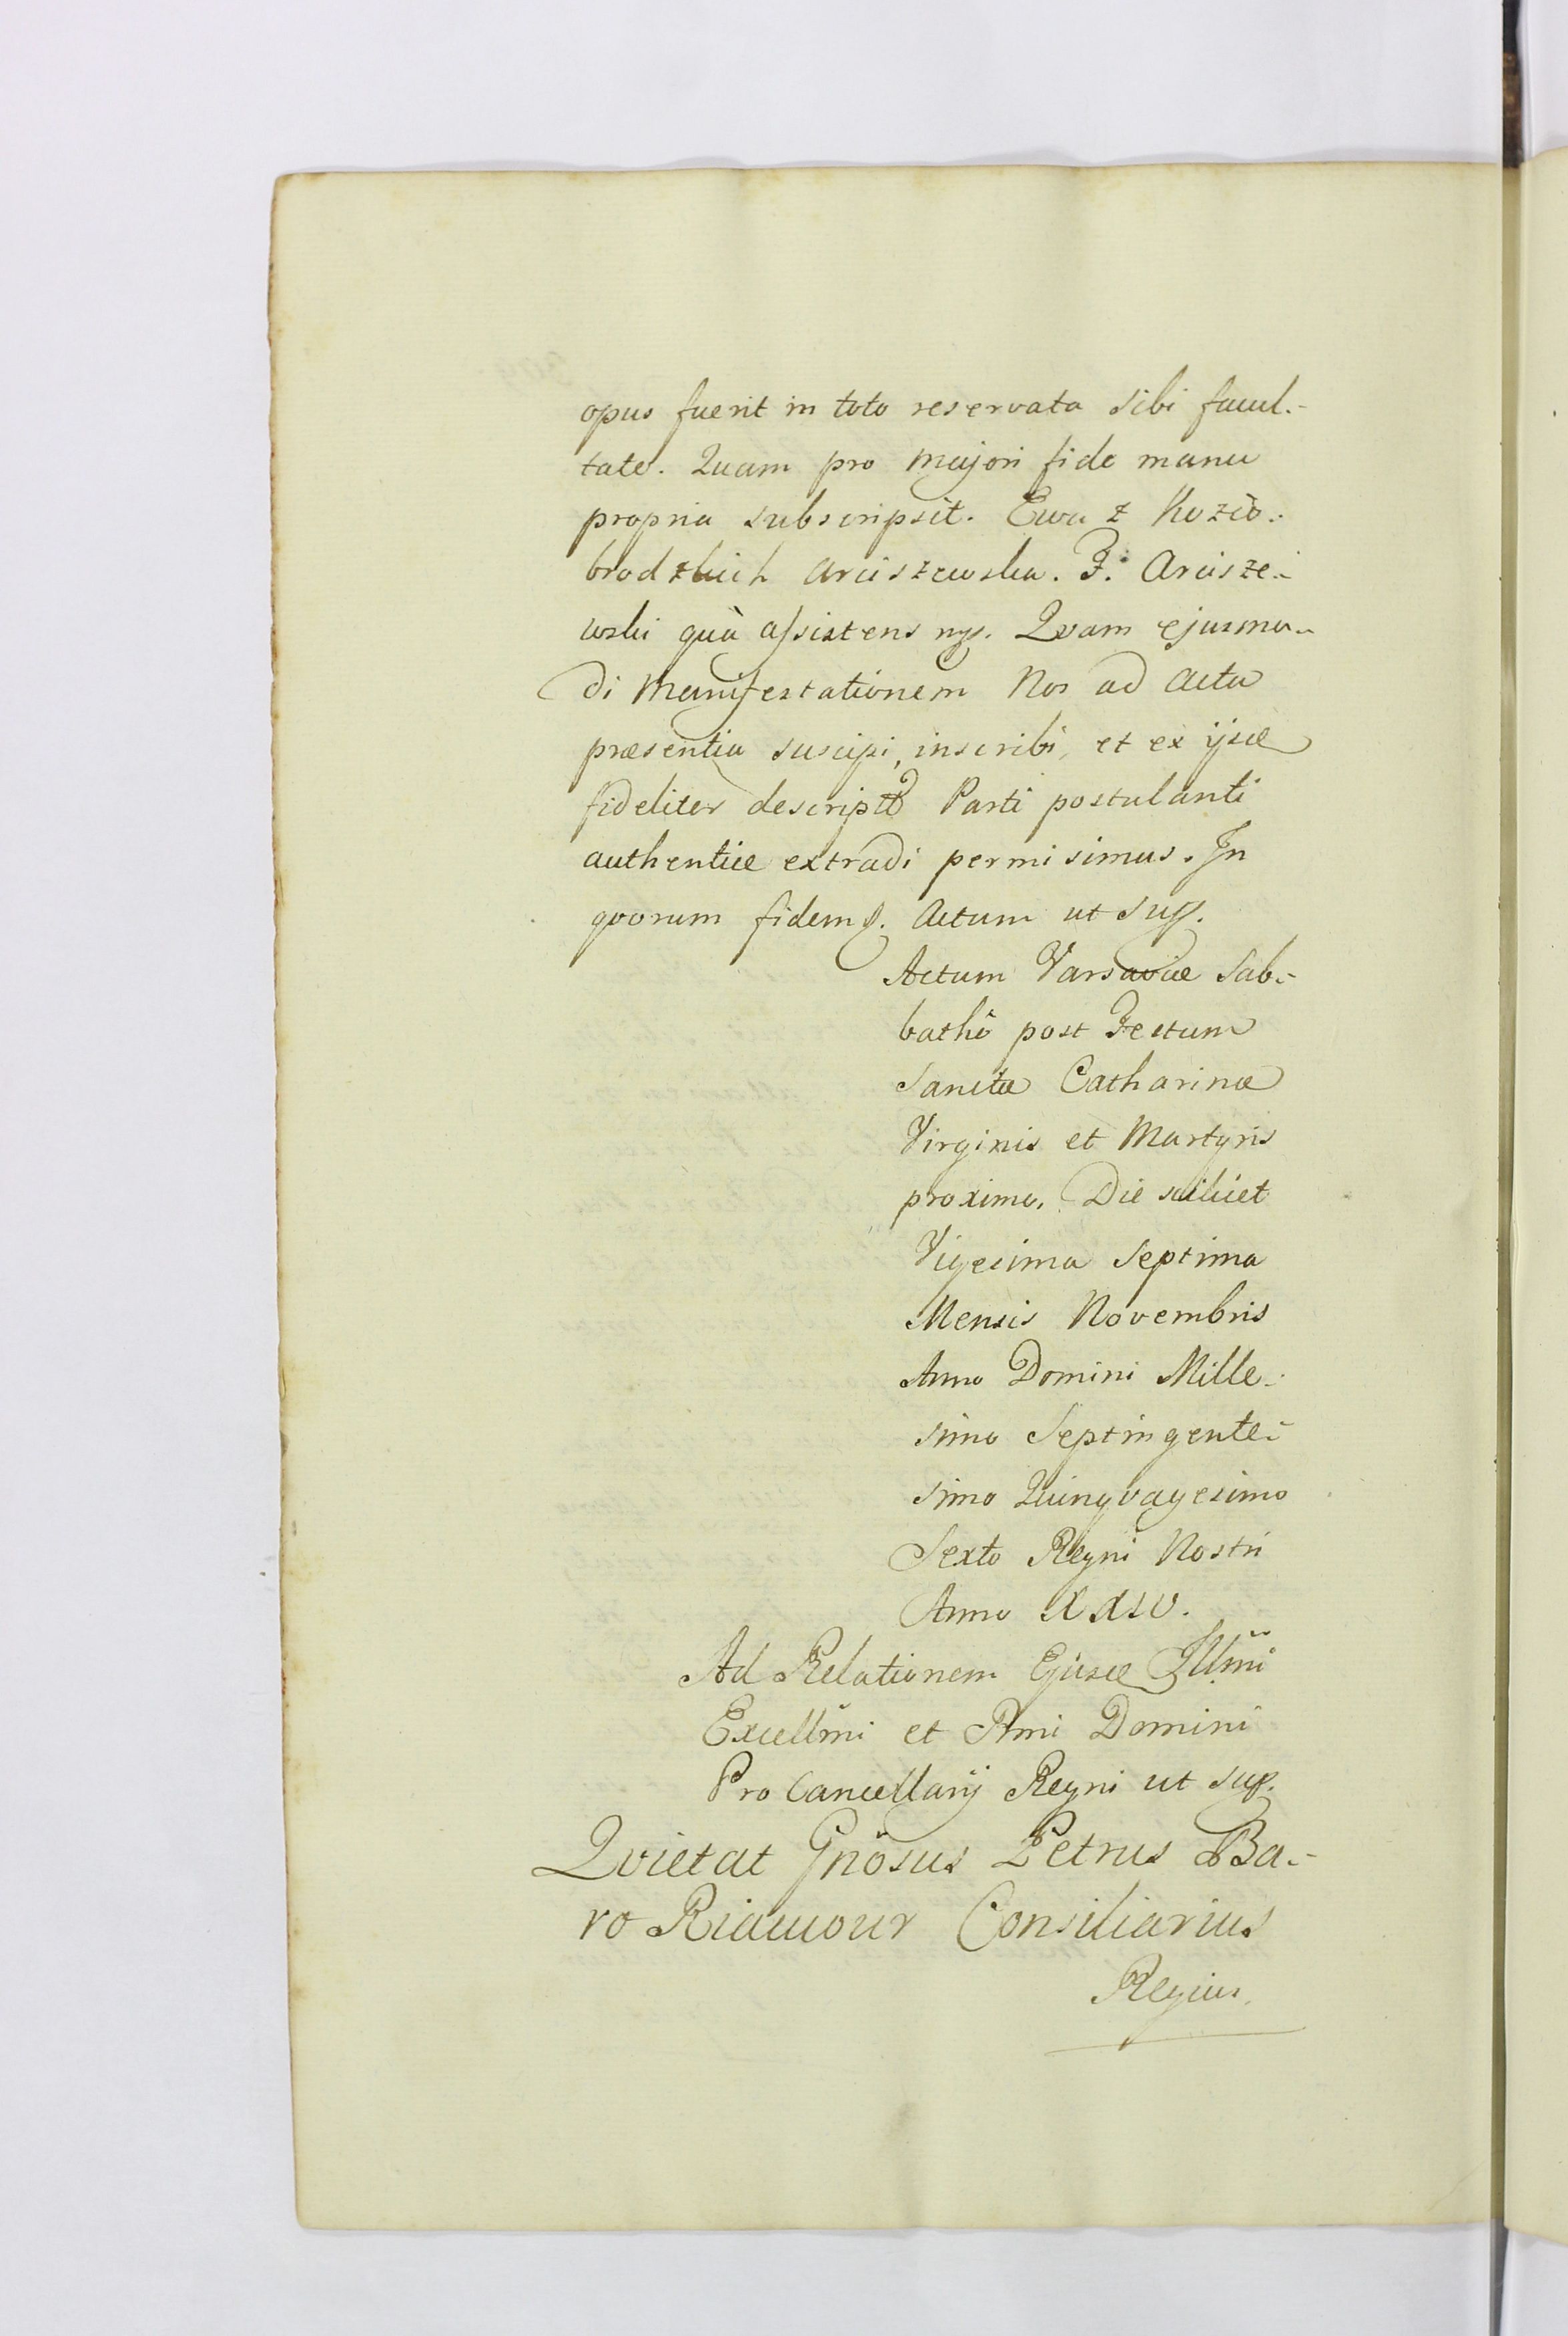 opus fuerit in toto reservata sibi facul-
tate. Quam pro majori fide manu
propria subscripsit. Ewa z Kozió-
brodzkich Arciszewska. F. Arcisze-
wski quà assistens mp. Qvam ejusmo-
di Manifestationem Nos ad Acta
præsentia suscipi, inscribi, et ex ijsde
fideliter descriptã Parti postulanti
authentice extradi permisimus. In
qvorum fidem p. Actum ut sup.
Actum Varsaviæ Sab-
bathô post Festum
Sanctæ Catharinæ
Virginis et Martyris
proximo, Die scilicet
Vigesima Septima
Mensis Novembris
Anno Domini Mille-
simo Septingente-
simo Quinqvagesimo
Sexto Regni Nostri
Anno XXIV.
Ad Relationem Ejusde Illmi
Excellmi et Rmi Domini
Pro Cancellarij Regni ut sup.
Qvietat Gnosus Petrus Ba-
ro Riaucour Consiliarius
Regius.